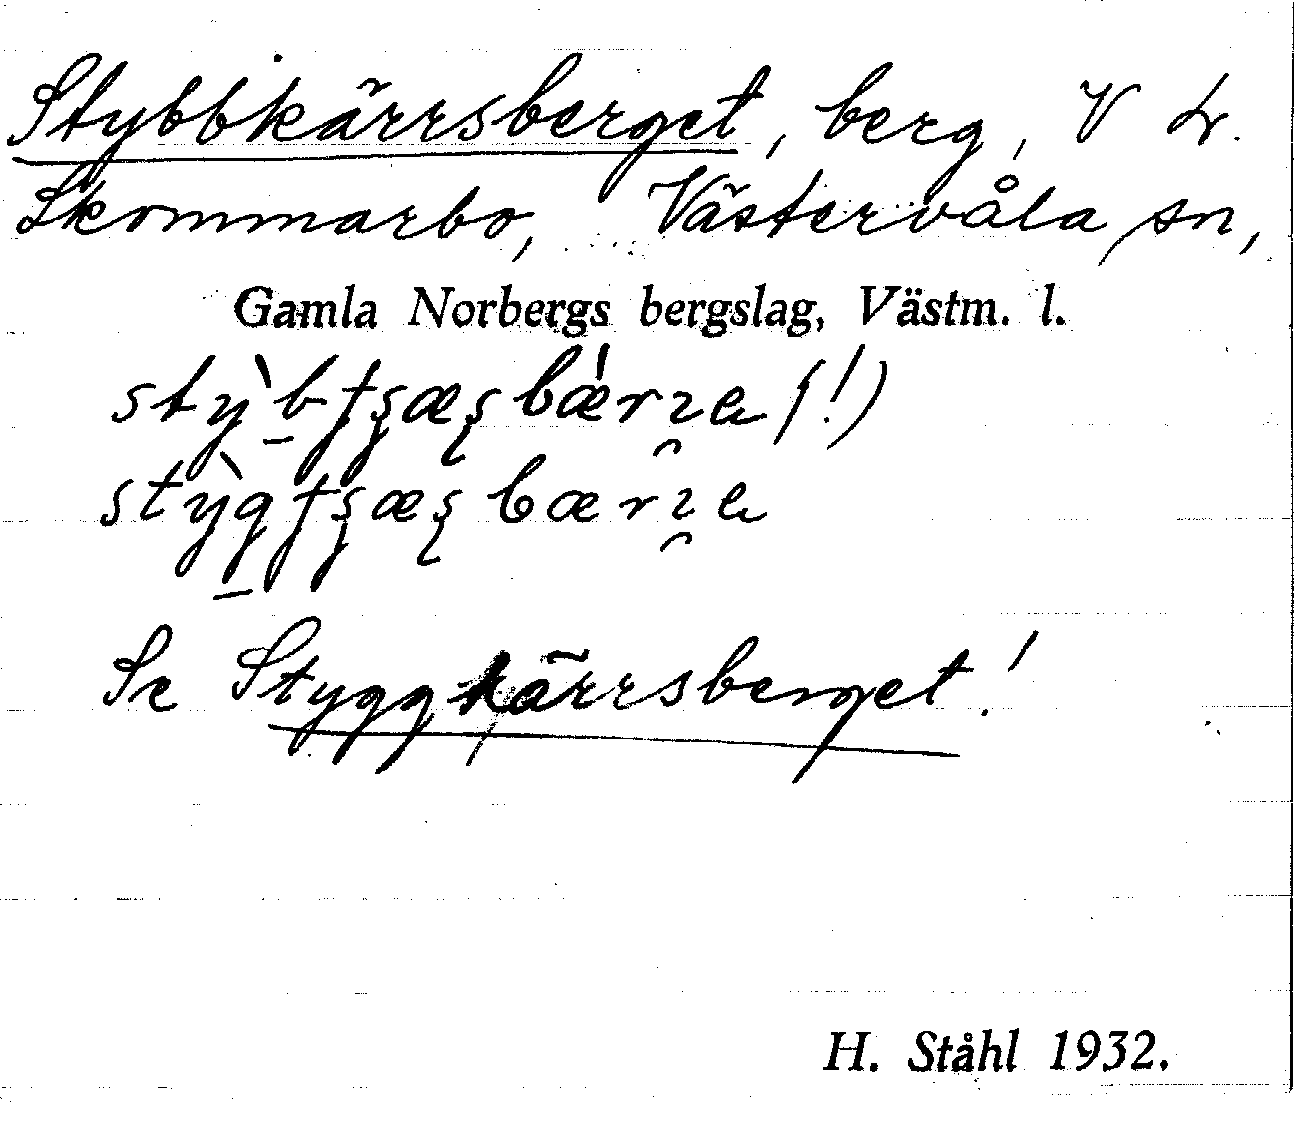 Stybbkärrsberget, berg, V Lr.
Skommarbo, Västervåla sn,
Gamla Norbergs bergslag, Västm. l.
(!)
Se Styggkärrsberget!
H. Ståhl 1932.